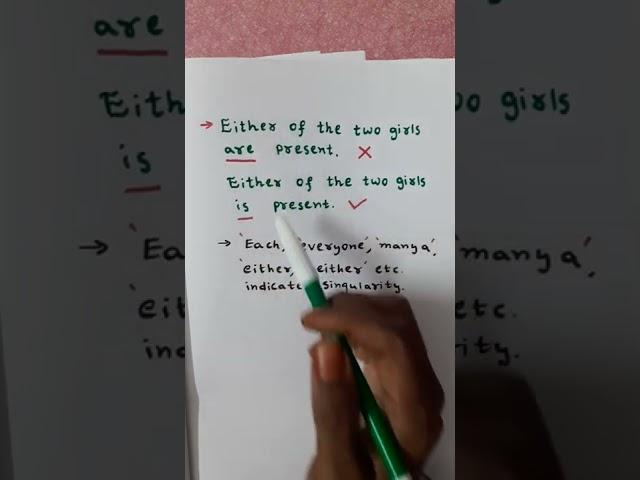 → Either of the two girls
are present. ✗
Either of the two girls
is present. ✓
→ 'Each, 'everyone', 'many a',
'either, either' etc.
indicate singularity.